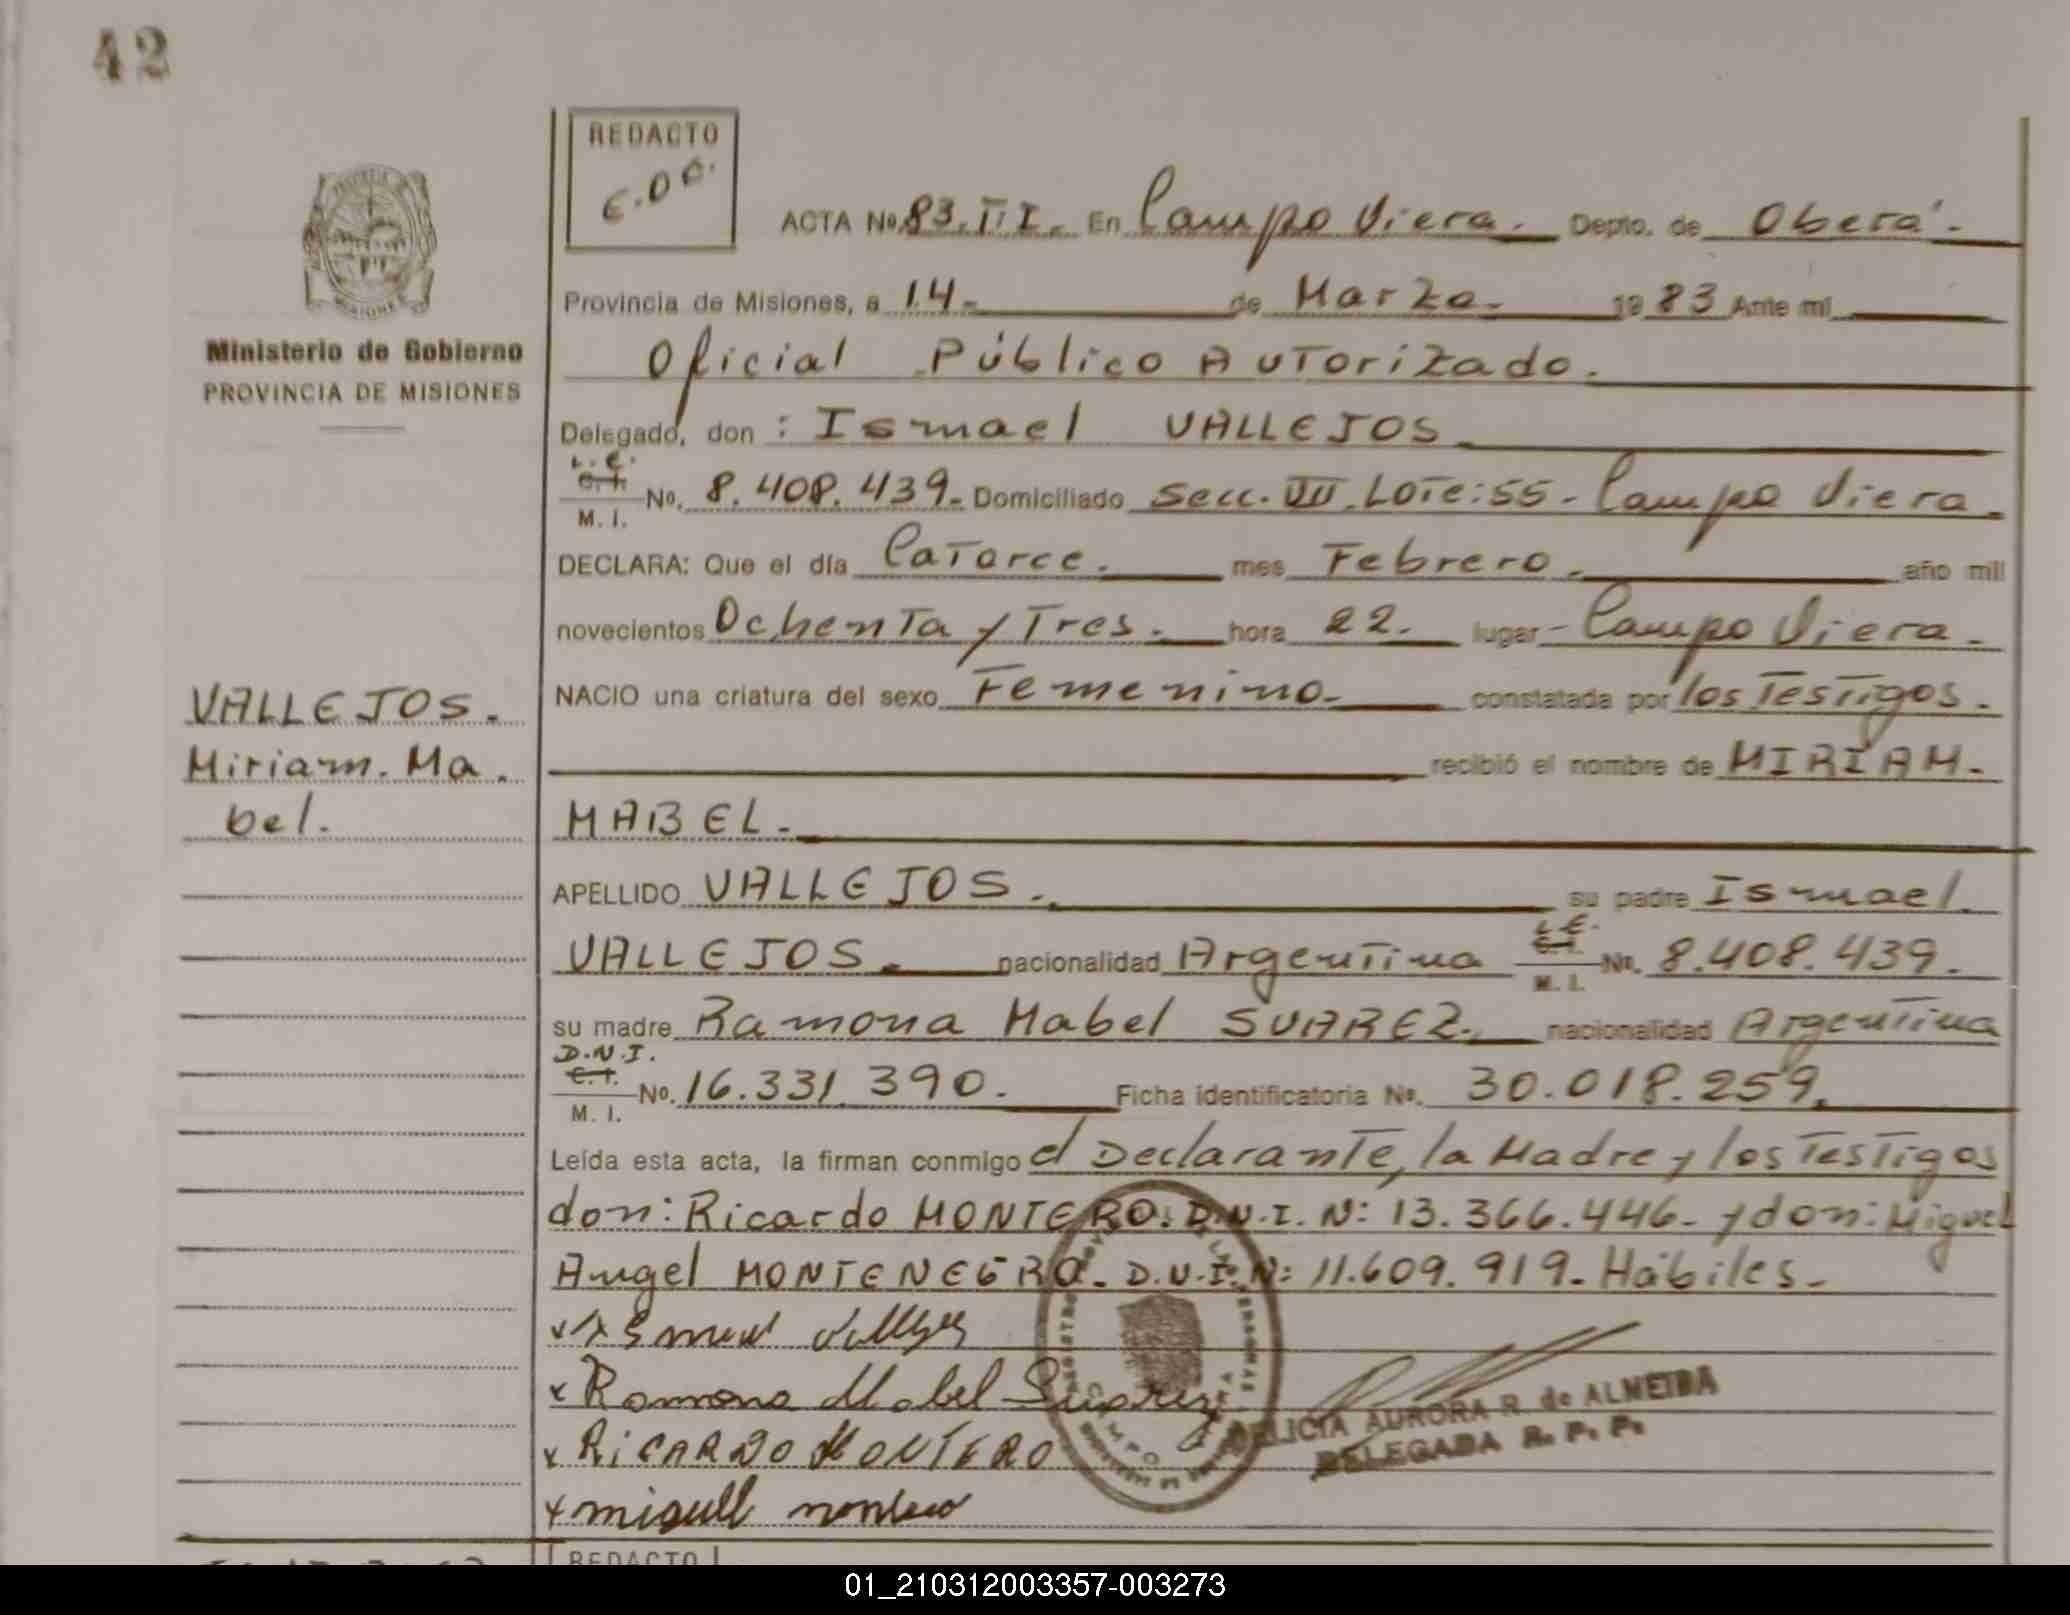 42
REDACTO
ACTA No. 83.III. En Campo Viera. Depto. de Oberá.
Provincia de Misiones, a 14. de Marzo. 1983 Ante mí
Ministerio de Gobierno
PROVINCIA DE MISIONES
Oficial Público Autorizado.
Delegado, don : Ismael VALLEJOS
L.E.
C.I.
M. I.
No. 8.408.439. Domiciliado Secc. VII. Lote: 55 - Campo Viera.
DECLARA: Que el día Catorce. mes Febrero. año mil
novecientos Ochenta y Tres. hora 22. lugar Campo Viera.
NACIO una criatura del sexo Femenino. constatada por los Testigos.
VALLEJOS.
Miriam. Ma.
bel.
recibió el nombre de MIRIAM.
MABEL.
APELLIDO VALLEJOS. su padre Ismael
VALLEJOS. nacionalidad Argentina L.E. C.I. M. I. No. 8.408.439.
su madre Ramona Mabel SUAREZ. nacionalidad Argentina
D.N.I.
C.I.
M. I.
No. 16.331.390. Ficha identificatoria No. 30.018.259.
Leída esta acta, la firman conmigo el Declarante, la Madre y los Testigos
don: Ricardo MONTERO. D.N.I. N: 13.366.446. y don: Miguel
Angel MONTENEGRO. D.N.I. N: 11.609.919. Hábiles.
Ramona Mabel Suarez
RICARDO MONTERO
AURORA R. de ALMEIDA
DELEGADA R. P. P.
REDACTO
01_210312003357-003273